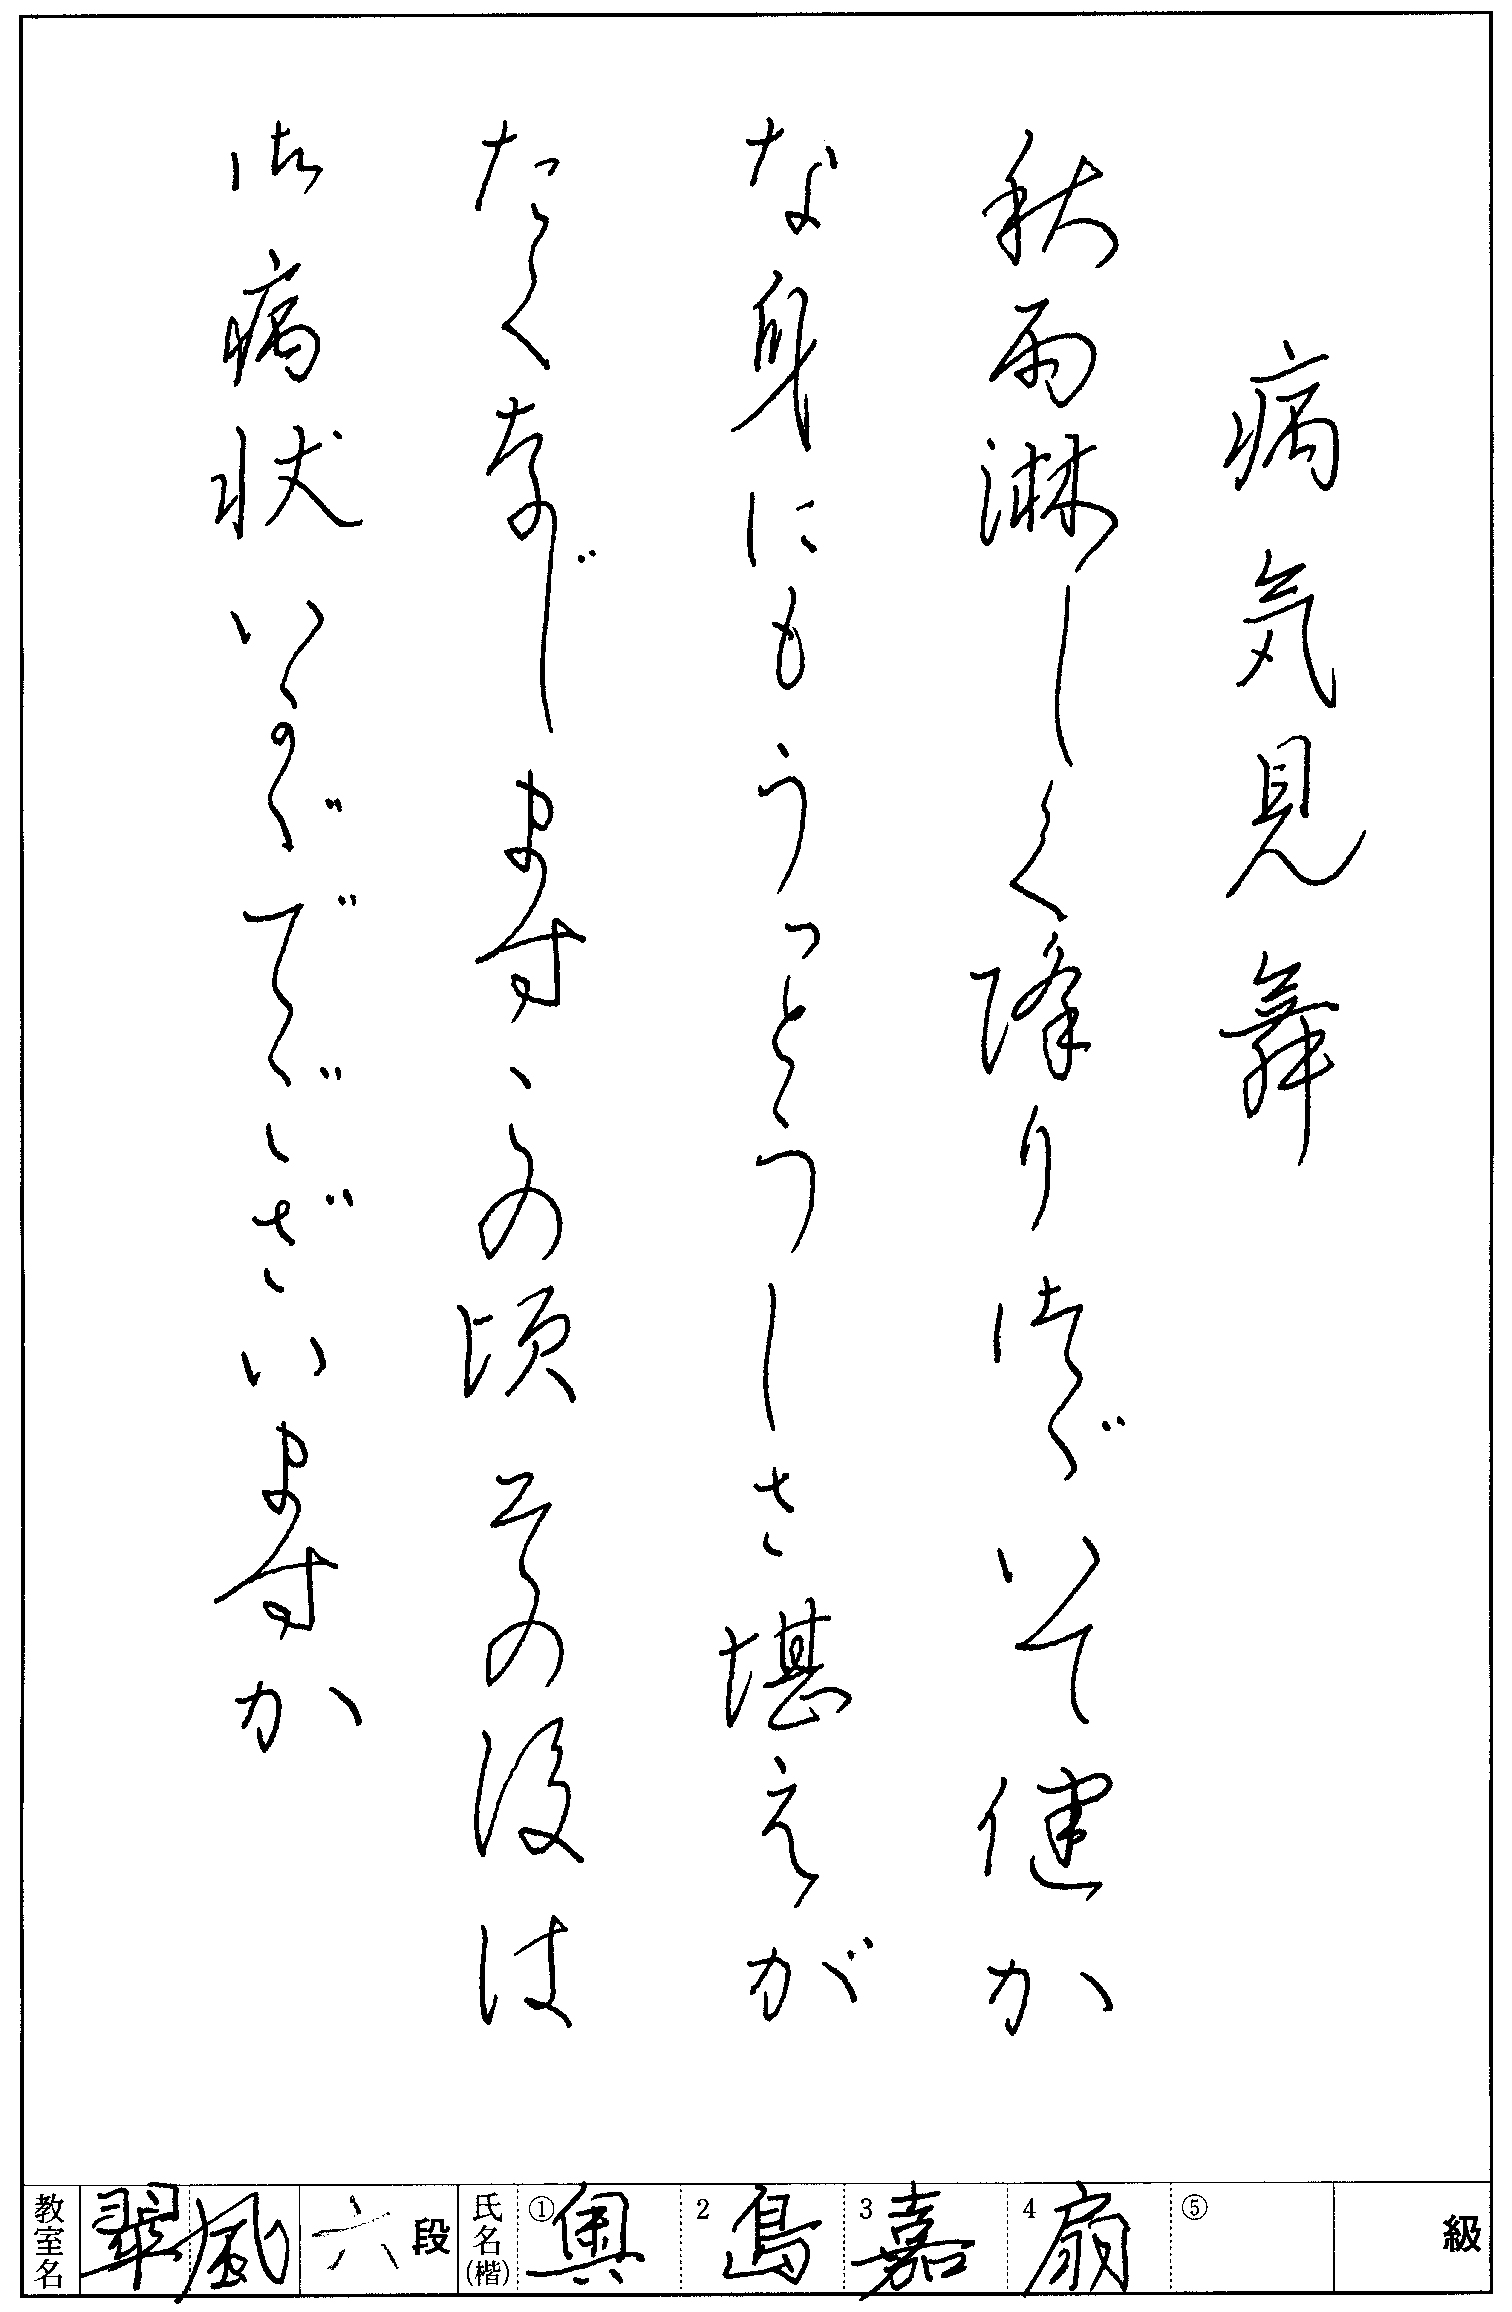 病気見舞
秋雨淋しく降りつづいて健か
な身にもうっとうしさ堪えが
たく存じます、この頃その後は
御病状いかがでございますか
教室名 翠風 六 段 氏名(楷) ① 奥 2 島 3 嘉 4 扇 ⑤ 級